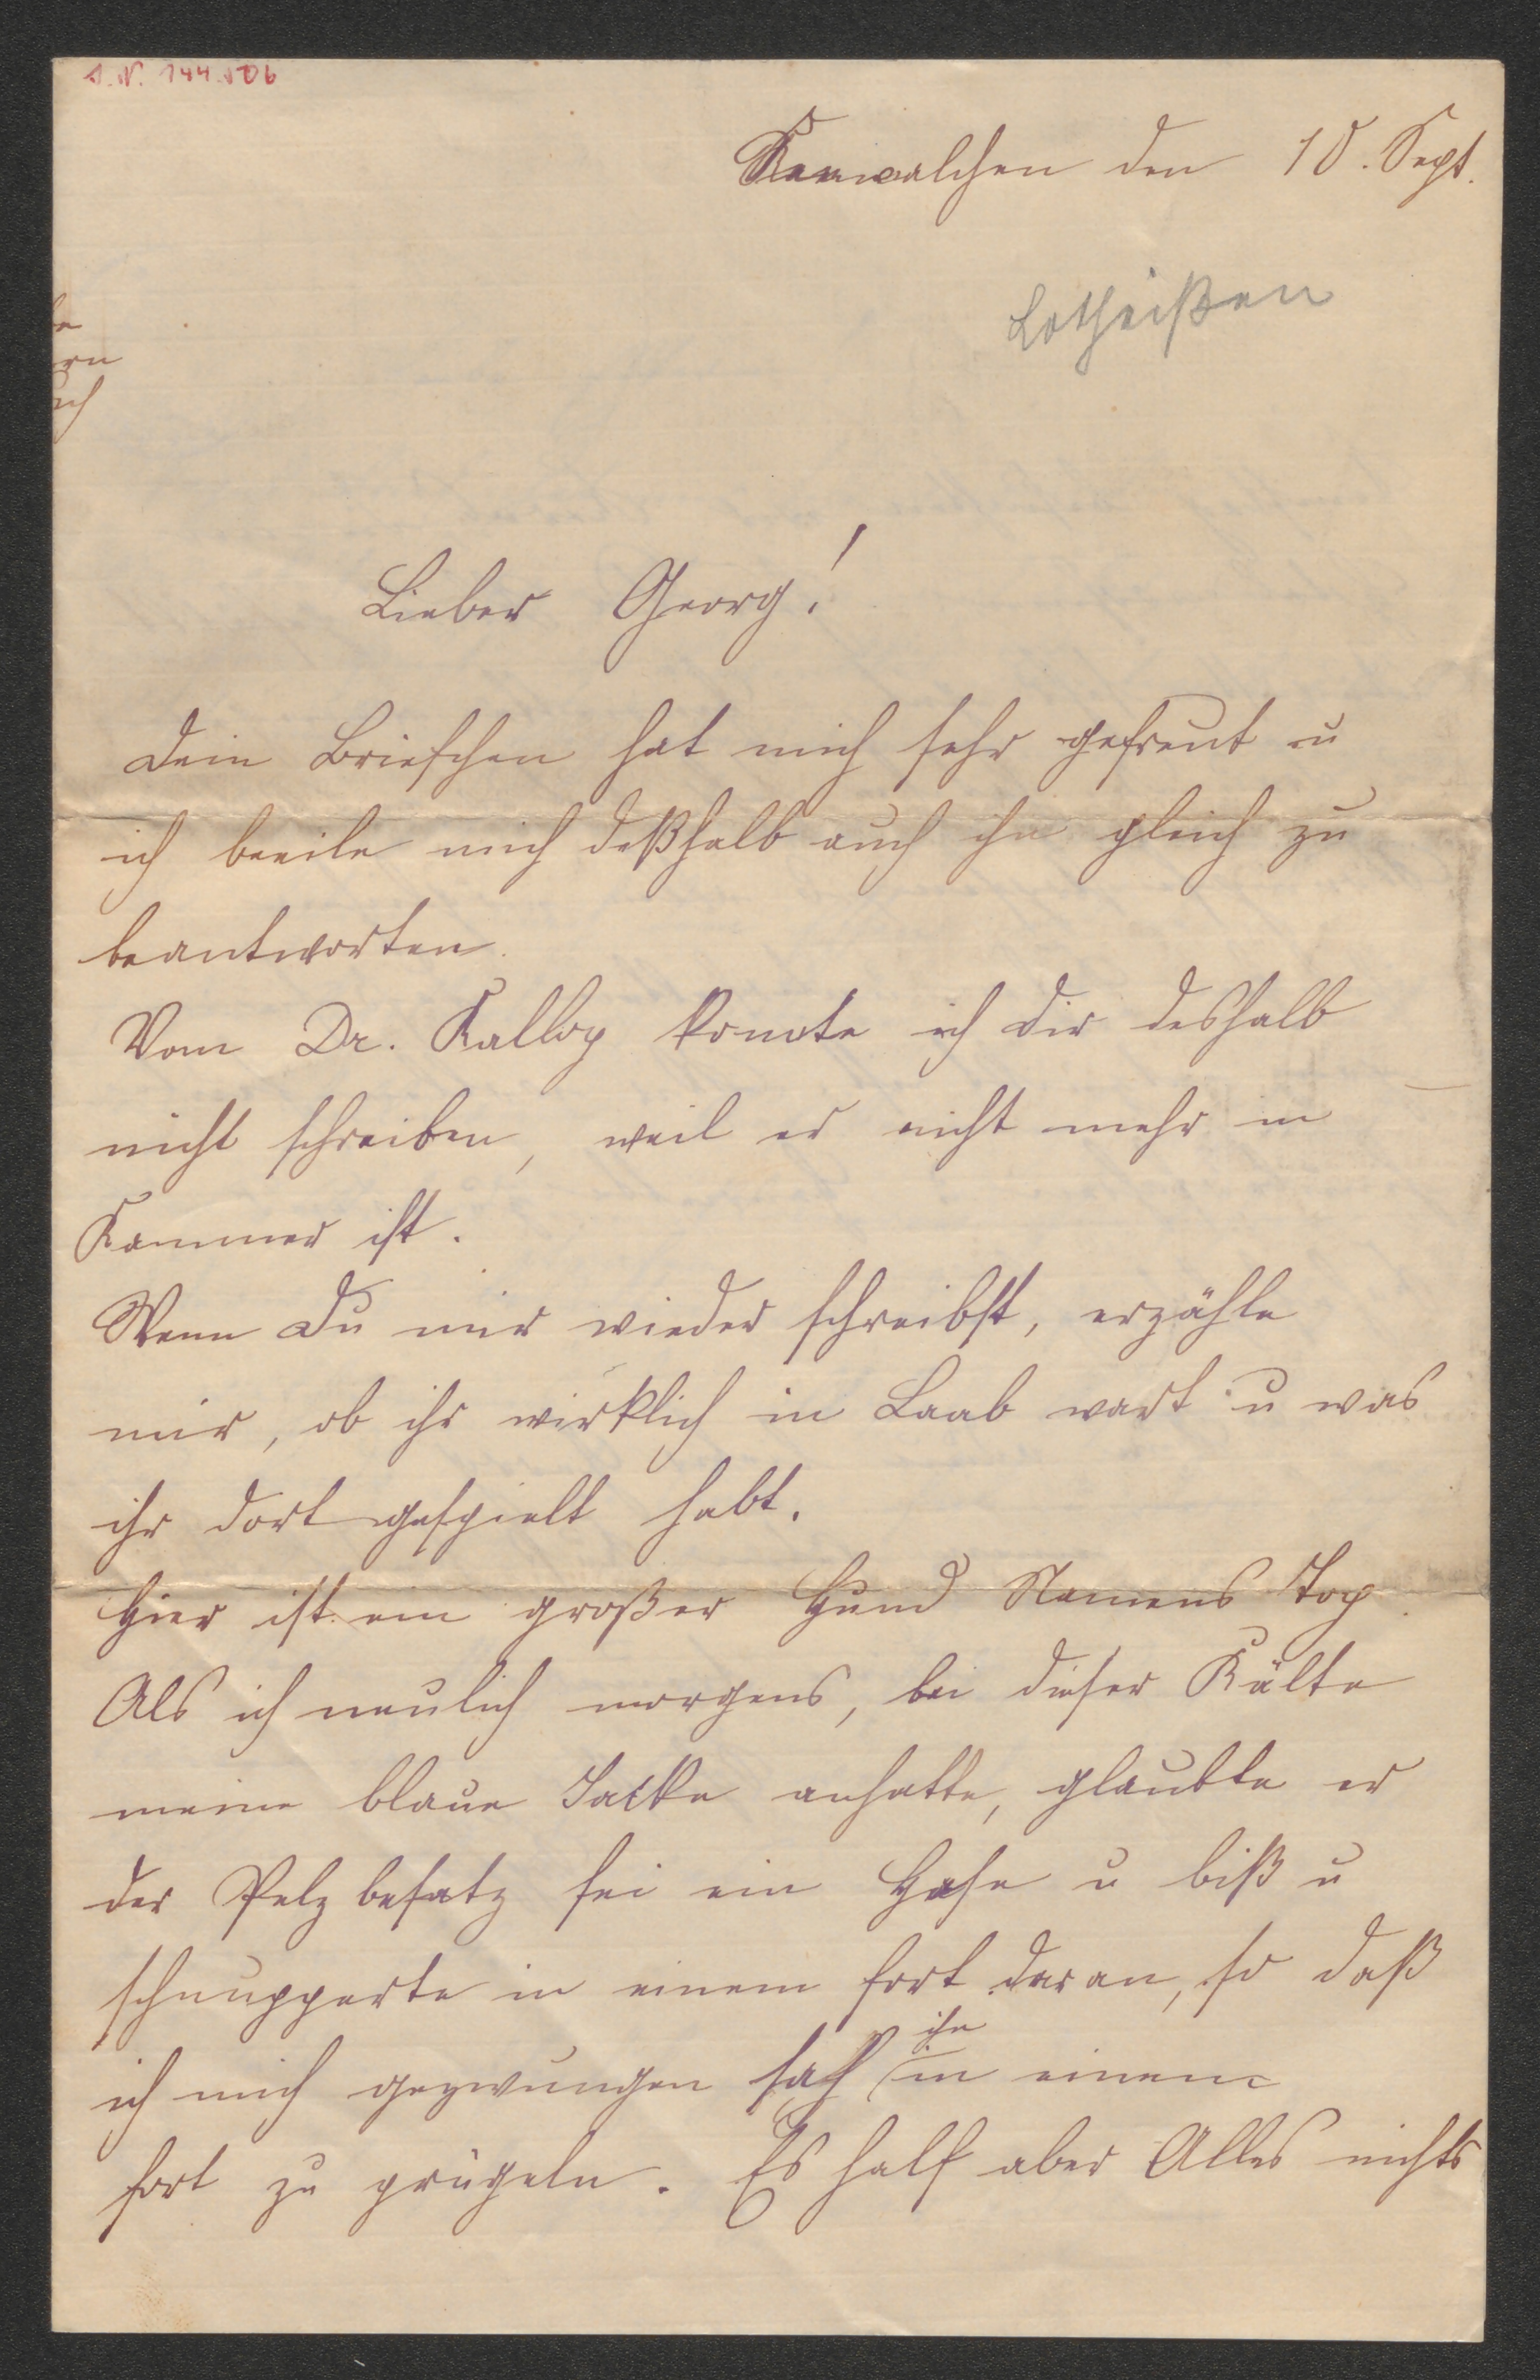 I. N. 144.506
Kerwalchen den 10. Sept.
Lotheißen
Lieber Georg!
Dein Briefchen hat mich sehr gefreut u
ich beeile mich deßhalb auch ihn gleich zu
beantworten.
Vom Dr. konnte ich Dir deshalb
nicht schreiben, weil er nicht mehr in
Kammer ist.
Wenn Du mir wieder schreibst, erzähle
mir, ob ihr wirklich in Laab wart u was
ihr dort gespielt habt.
Hier ist ein großer Hund Namens Top.
Als ich neulich morgens, bei dieser Kälte
meine blaue Jacke anhatte, glaubte er
der Pelzbesatz sei ein Hase u biß u
schnupperte in einem fort daran, so daß
ich mich gezwungen sah ihn in einem
fort zu prügeln. Es half aber Alles nichts